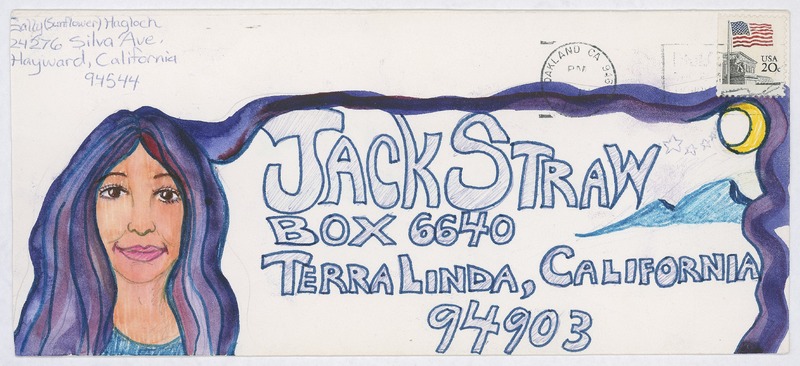 Sally (Sunflower) Hagloch
24276 Silva Ave.
Hayward, California
94544
OAKLAND CA 946
PM
USA
20c
JACK STRAW
BOX 6640
TERRA LINDA, CALIFORNIA
94903